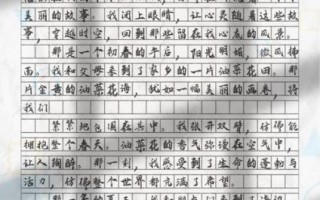 美丽的故事。我闭上眼睛，让心灵随着这些故
事，穿越时空，回到那些留在我心底的风景。
那是一个初春的午后，阳光明媚，微风拂
面。我和父母来到了家乡的一片油菜花田。那
片金黄的油菜花海，犹如一幅美丽的画卷，将
我们
紧紧地包围在其中。我张开双臂，仿佛能
拥抱整个春天。油菜花的香气弥漫在空气中，
让人陶醉。那一刻，我感受到了生命的蓬勃与
活力，仿佛整个世界都充满了希望。